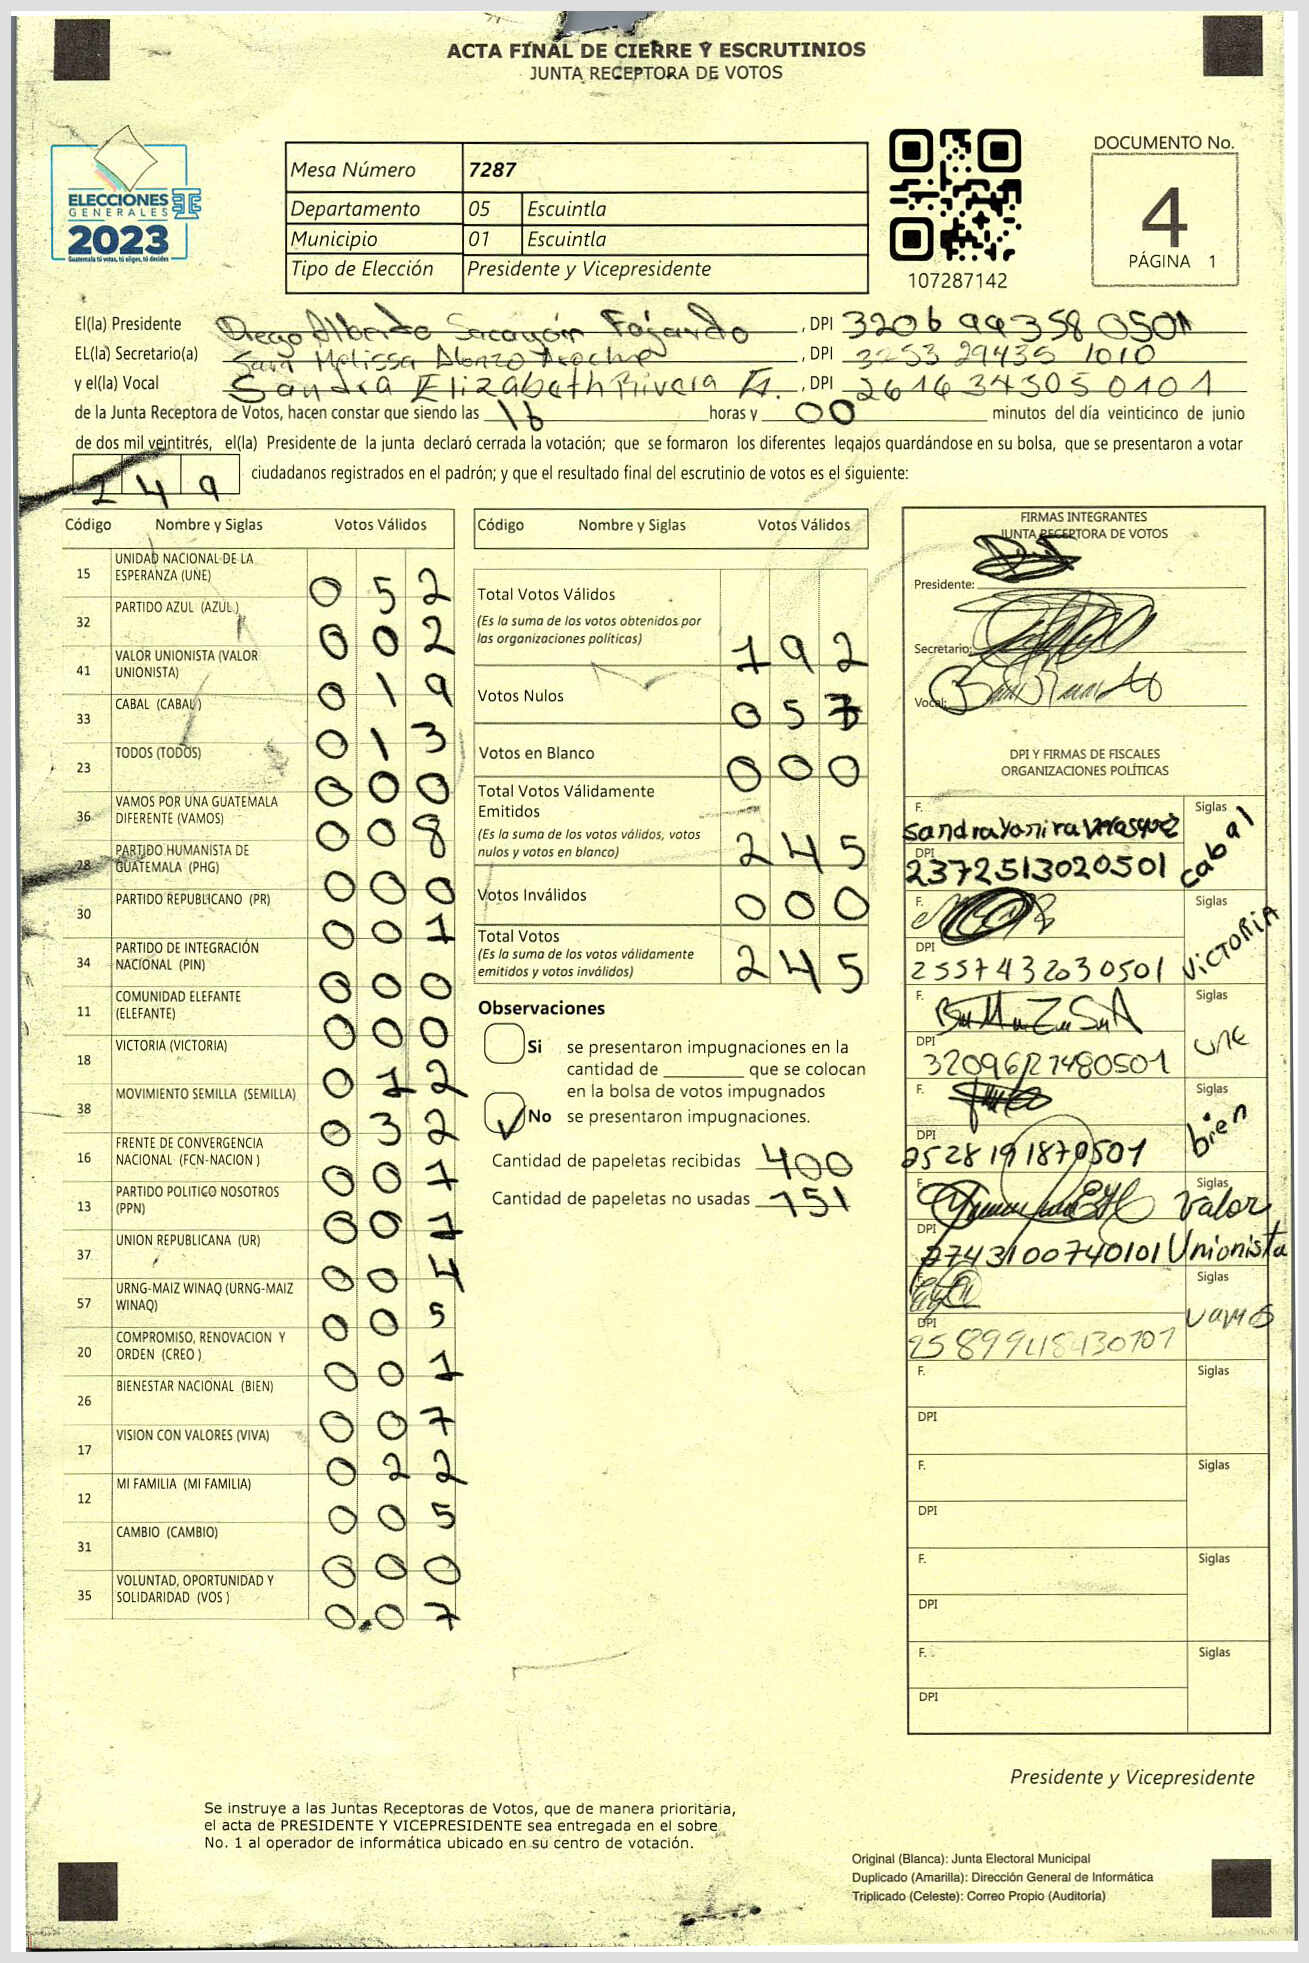 ACTA FINAL DE CIERRE Y ESCRUTINIOS
JUNTA RECEPTORA DE VOTOS
ELECCIONES
GENERALES
2023
Guatemala tú votas, tú eliges, tú decides
Mesa Número 7287
Departamento 05 Escuintla
Municipio 01 Escuintla
Tipo de Elección Presidente y Vicepresidente
107287142
DOCUMENTO No.
4
PÁGINA 1
El(la) Presidente Diego Alberto Sacayón Fajardo , DPI
EL(la) Secretario(a) Melissa , DPI 3253 29435 1010
y el(la) Vocal Sandra Elizabeth Rivera , DPI 2616343050101
de la Junta Receptora de Votos, hacen constar que siendo las 16 horas y 00 minutos del día veinticinco de junio
de dos mil veintitrés, el(la) Presidente de la junta declaró cerrada la votación; que se formaron los diferentes legajos quardándose en su bolsa, que se presentaron a votar
249 ciudadanos registrados en el padrón; y que el resultado final del escrutinio de votos es el siguiente:
Código Nombre y Siglas Votos Válidos
15 UNIDAD NACIONAL DE LA
ESPERANZA (UNE) 052
32 PARTIDO AZUL (AZUL) 002
41 VALOR UNIONISTA (VALOR
UNIONISTA) 019
33 CABAL (CABAL) 013
23 TODOS (TODOS) 000
36 VAMOS POR UNA GUATEMALA
DIFERENTE (VAMOS) 008
28 PARTIDO HUMANISTA DE
GUATEMALA (PHG) 000
30 PARTIDO REPUBLICANO (PR) 001
34 PARTIDO DE INTEGRACIÓN
NACIONAL (PIN) 000
11 COMUNIDAD ELEFANTE
(ELEFANTE) 000
18 VICTORIA (VICTORIA) 012
38 MOVIMIENTO SEMILLA (SEMILLA) 032
16 FRENTE DE CONVERGENCIA
NACIONAL (FCN-NACION) 001
13 PARTIDO POLITICO NOSOTROS
(PPN) 001
37 UNION REPUBLICANA (UR) 004
57 URNG-MAIZ WINAQ (URNG-MAIZ
WINAQ) 005
20 COMPROMISO, RENOVACION Y
ORDEN (CREO) 001
26 BIENESTAR NACIONAL (BIEN) 007
17 VISION CON VALORES (VIVA) 022
12 MI FAMILIA (MI FAMILIA) 005
31 CAMBIO (CAMBIO) 000
35 VOLUNTAD, OPORTUNIDAD Y
SOLIDARIDAD (VOS) 007
Código Nombre y Siglas Votos Válidos
Total Votos Válidos
(Es la suma de los votos obtenidos por
las organizaciones políticas) 192
Votos Nulos 053
Votos en Blanco 000
Total Votos Válidamente
Emitidos
(Es la suma de los votos válidos, votos
nulos y votos en blanco) 245
Votos Inválidos 000
Total Votos
(Es la suma de los votos válidamente
emitidos y votos inválidos) 245
Observaciones
Si se presentaron impugnaciones en la
cantidad de ________ que se colocan
en la bolsa de votos impugnados
No se presentaron impugnaciones.
Cantidad de papeletas recibidas 400
Cantidad de papeletas no usadas 151
FIRMAS INTEGRANTES
JUNTA RECEPTORA DE VOTOS
Presidente:
Secretario:
Vocal:
DPI Y FIRMAS DE FISCALES
ORGANIZACIONES POLÍTICAS
F. Siglas
Sandra Yanira Velasquez
DPI
2372513020501 cabal
F. Siglas
DPI
2557432030501 VICTORIA
F. Siglas
DPI
UNE
F. Siglas
DPI
2528191870501 bien
F. Siglas
Valor
DPI
2743100740101 Unionista
F. Siglas
DPI
vamos
F. Siglas
DPI
F. Siglas
DPI
F. Siglas
DPI
F. Siglas
DPI
Presidente y Vicepresidente
Se instruye a las Juntas Receptoras de Votos, que de manera prioritaria,
el acta de PRESIDENTE Y VICEPRESIDENTE sea entregada en el sobre
No. 1 al operador de informática ubicado en su centro de votación.
Original (Blanca): Junta Electoral Municipal
Duplicado (Amarilla): Dirección General de Informática
Triplicado (Celeste): Correo Propio (Auditoría)